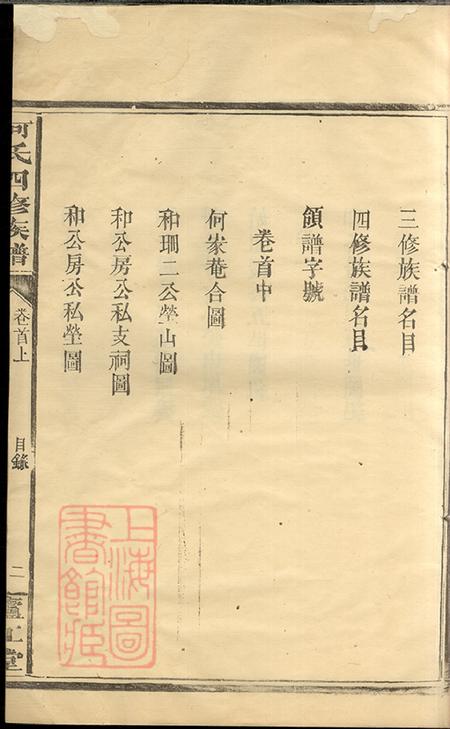 三修族譜名目
四修族譜名目
領譜字號
卷首中
何家菴合圖
和珊二公塋山圖
和公房公私支祠圖
和公房公私塋圖
何氏四修族譜
卷首上
目錄
二
廬江堂
上海圖
書館藏